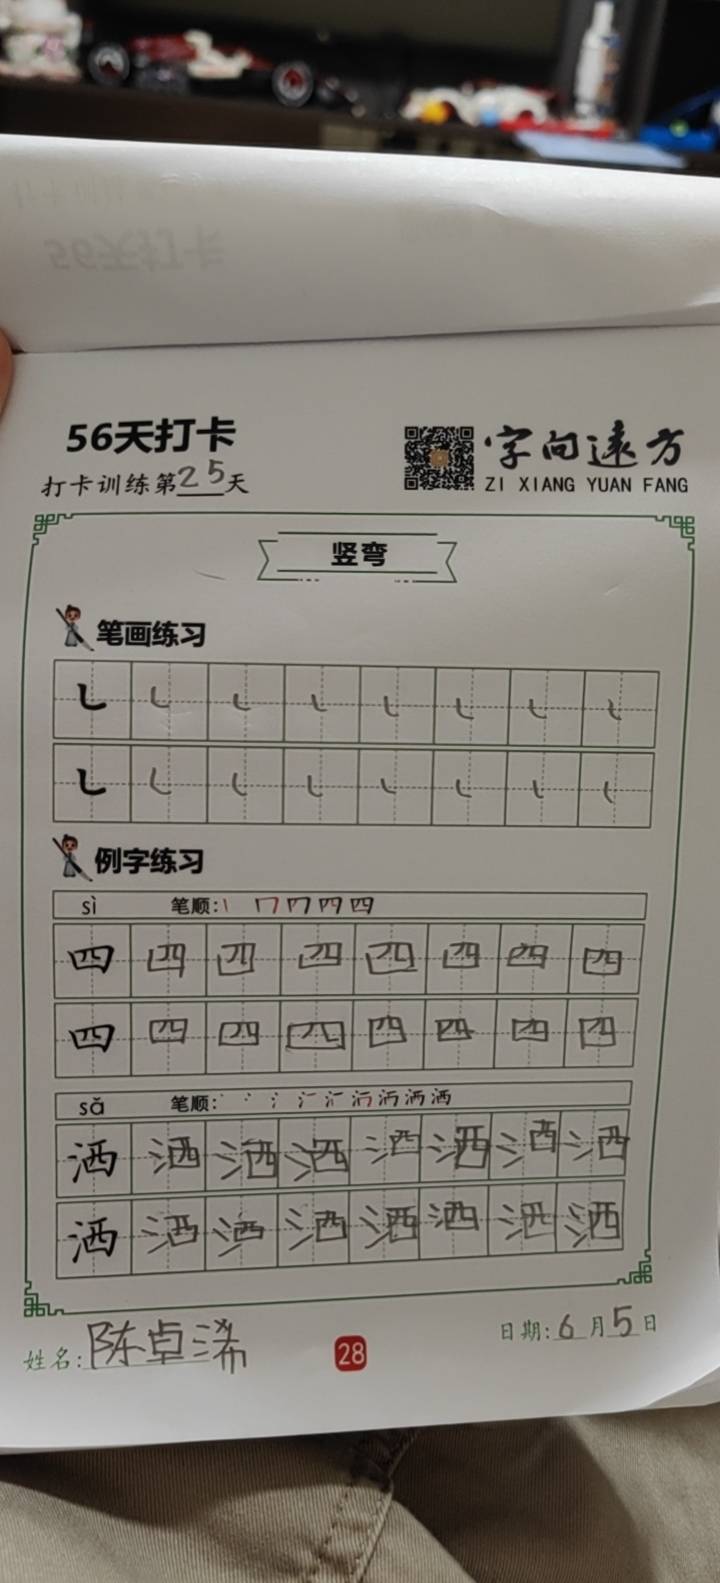 56天打卡
打卡训练第25天
字向远方
ZI XIANG YUAN FANG
竖弯
笔画练习
㇄ ㇄ ㇄ ㇄ ㇄ ㇄ ㇄ ㇄
㇄ ㇄ ㇄ ㇄ ㇄ ㇄ ㇄ ㇄
例字练习
sì 笔顺:
四 四 四 四 四 四 四 四
四 四 四 四 四 四 四 四
sǎ 笔顺:
洒 洒 洒 洒 洒 洒 洒 洒
洒 洒 洒 洒 洒 洒 洒 洒
姓名:陈卓浠
28
日期:6月5日